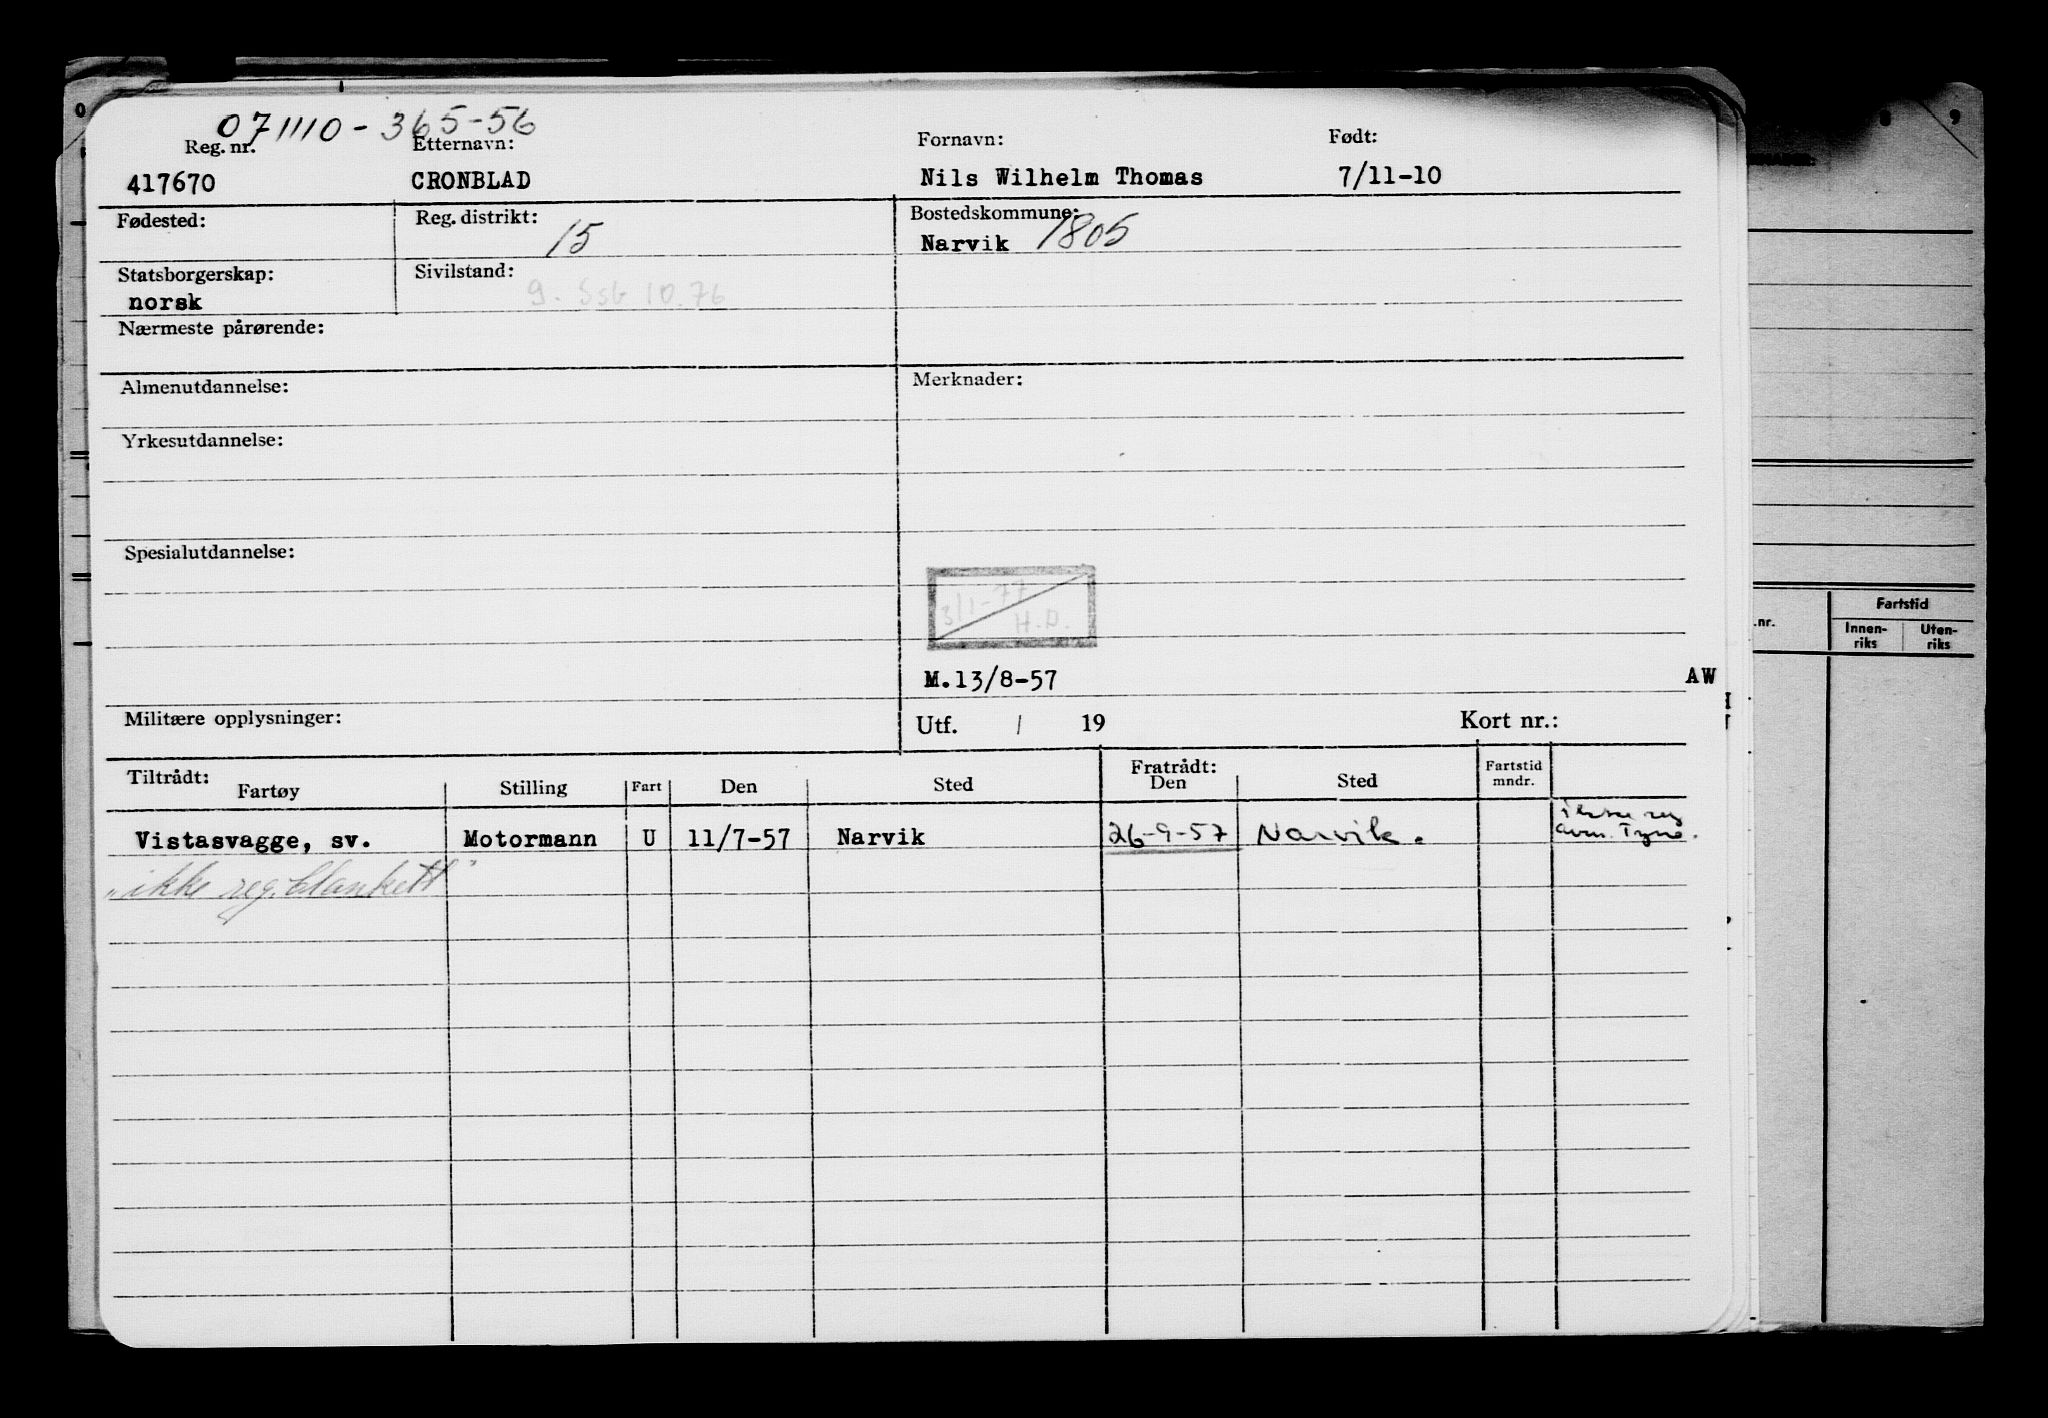 071110-365-56
Reg. nr. Etternavn: Fornavn: Født:
417670 CRONBLAD Nils Wilhelm Thomas 7/11-10
Fødested: Reg. distrikt: 15 Bostedskommune:
Narvik 1805
Statsborgerskap: Sivilstand:
norsk g. Ssb 10.76
Nærmeste pårørende:
Almenutdannelse: Merknader:
Yrkesutdannelse:
Spesialutdannelse:
3/1-77
H.D.
M.13/8-57 AW
Militære opplysninger: Utf. / 19 Kort nr.:
Tiltrådt: Fratrådt: Fartstid
Fartøy Stilling Fart Den Sted Den Sted mndr.
Vistasvagge, sv. Motormann U 11/7-57 Narvik 26-9-57 Narvik. ikke reg
"ikke reg. blankett"
0
8 9
.nr. Fartstid
Innen- Uten-
riks riks